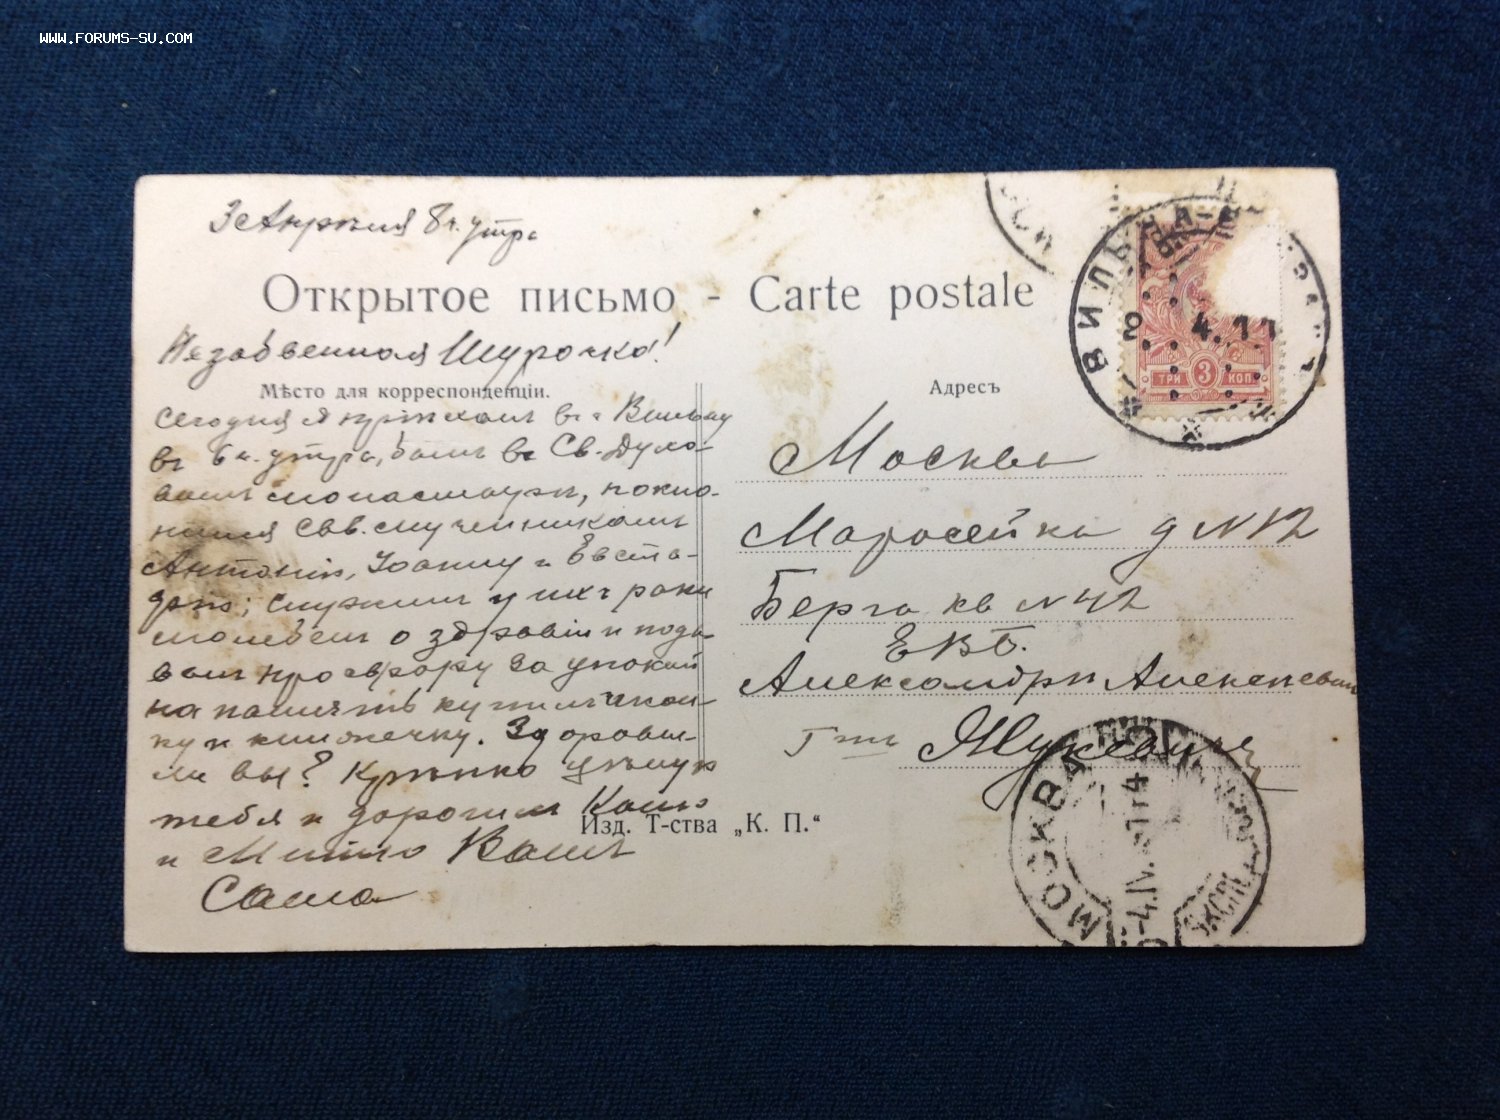 WWW.FORUMS-SU.COM
3 Апрѣля 8 ч. утра
Открытое письмо - Carte postale
Незабвенная Шурочка!
Мѣсто для корреспонденціи.
Адресъ
Сегодня я пріѣхалъ въ г Вильну
въ 6 ч. утра, былъ въ Св. Духо-
вомъ монастырѣ, покло-
нился Свв. мученикамъ
Антонію, Іоанну и Евста-
фію; служилъ у ихъ раки
молебенъ о здравіи и пода-
валъ просфору за упокой
на память
ку и книжечку. Здоровы-
ли вы? Крѣпко цѣлую
тебя и дорогихъ Катю
и Митю Вашъ
Саша
Москва
Маросейка д N 12
Берга кв N 42
ЕВБ.
Александрѣ Алексѣевнѣ
Г-жѣ Жукевичъ
Изд. Т-ства „К. П.“
ВИЛЬНА
2 4 11
ТРИ 3 КОП
МОСКВА
4.IV
ЭКСП.